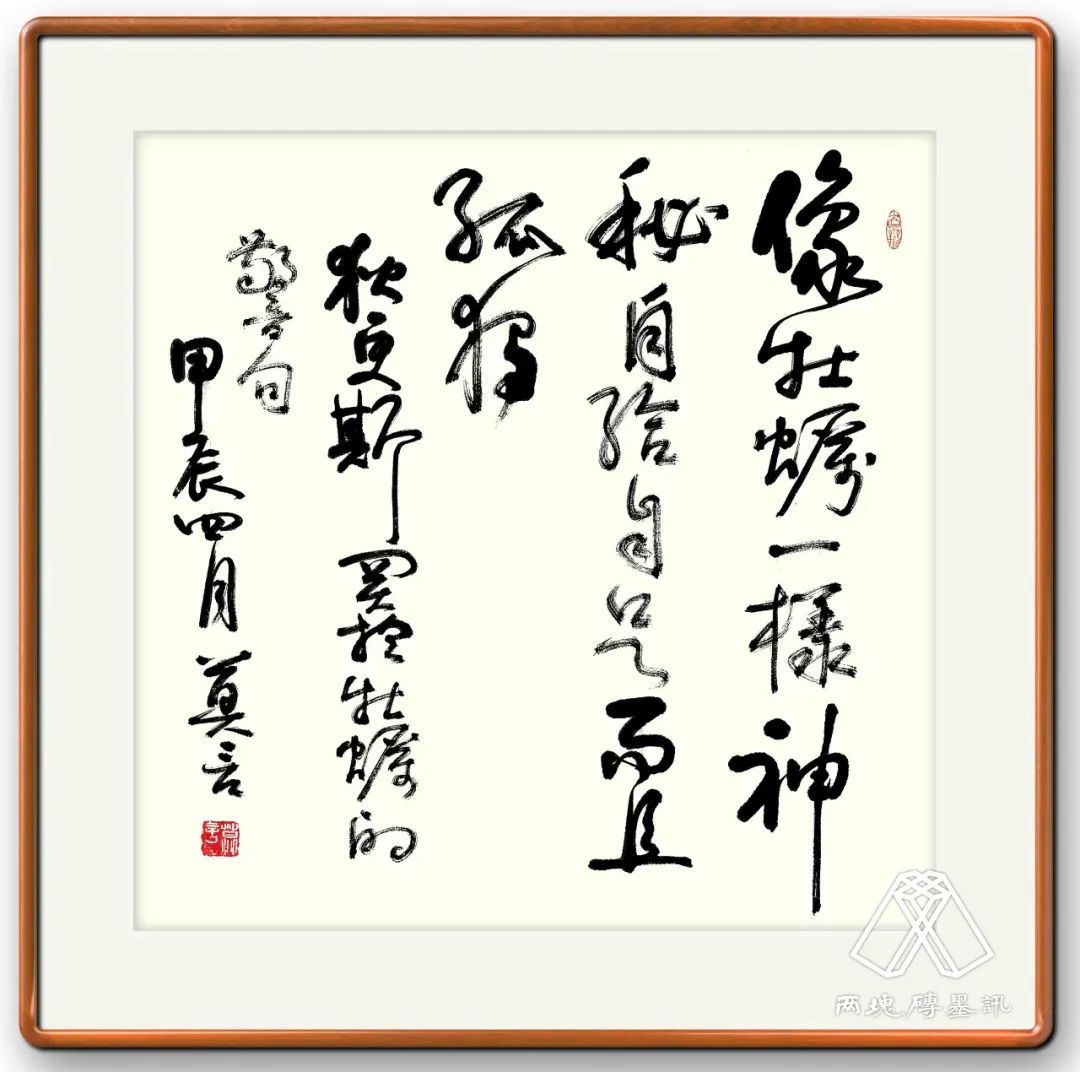 像牡蠣一樣神
秘自給自足而且
孤獨
狄更斯關於牡蠣的
警句
甲辰四月 莫言
莫言
两塊磚墨訊